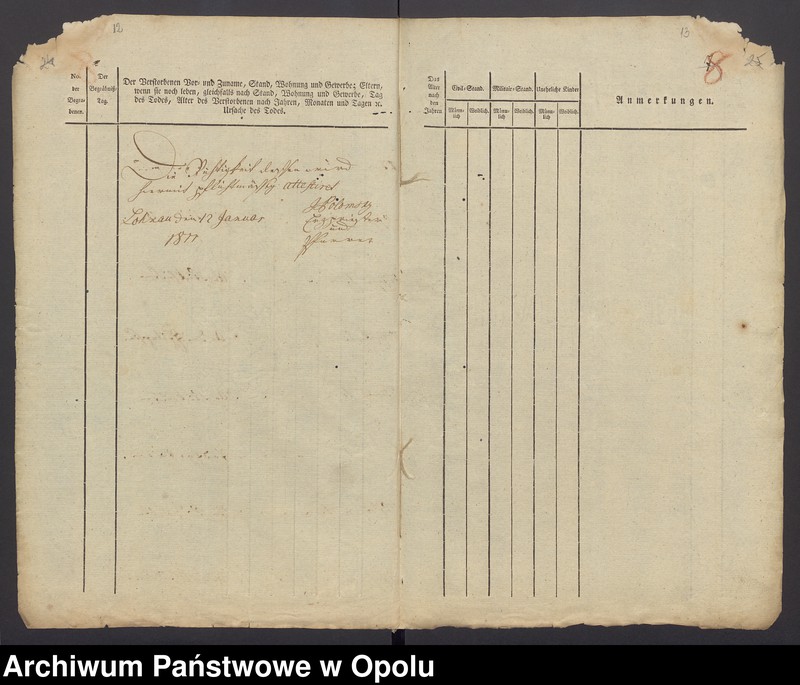 12
13
8
No.
der
Begra-
benen.
Der
Begräbniß-
Tag.
Der Verstorbenen Vor- und Zuname, Stand, Wohnung und Gewerbe; Eltern,
wenn sie noch leben, gleichfalls nach Stand, Wohnung und Gewerbe, Tag
des Todes, Alter des Verstorbenen nach Jahren, Monaten und Tagen ꝛc.
Ursache des Todes.
Das
Alter
nach
den
Jahren
Civil-Stand.
Militair-Stand.
Uneheliche Kinder
Männ-
lich
Weiblich.
Männ-
lich
Weiblich.
Männ-
lich
Weiblich.
Anmerkungen.
Die Richtigkeit dessen wird
hiermit pflichtmäßig attestiret
den 12 Januar
Erzpriester
und
Pfarrer
Archiwum Państwowe w Opolu